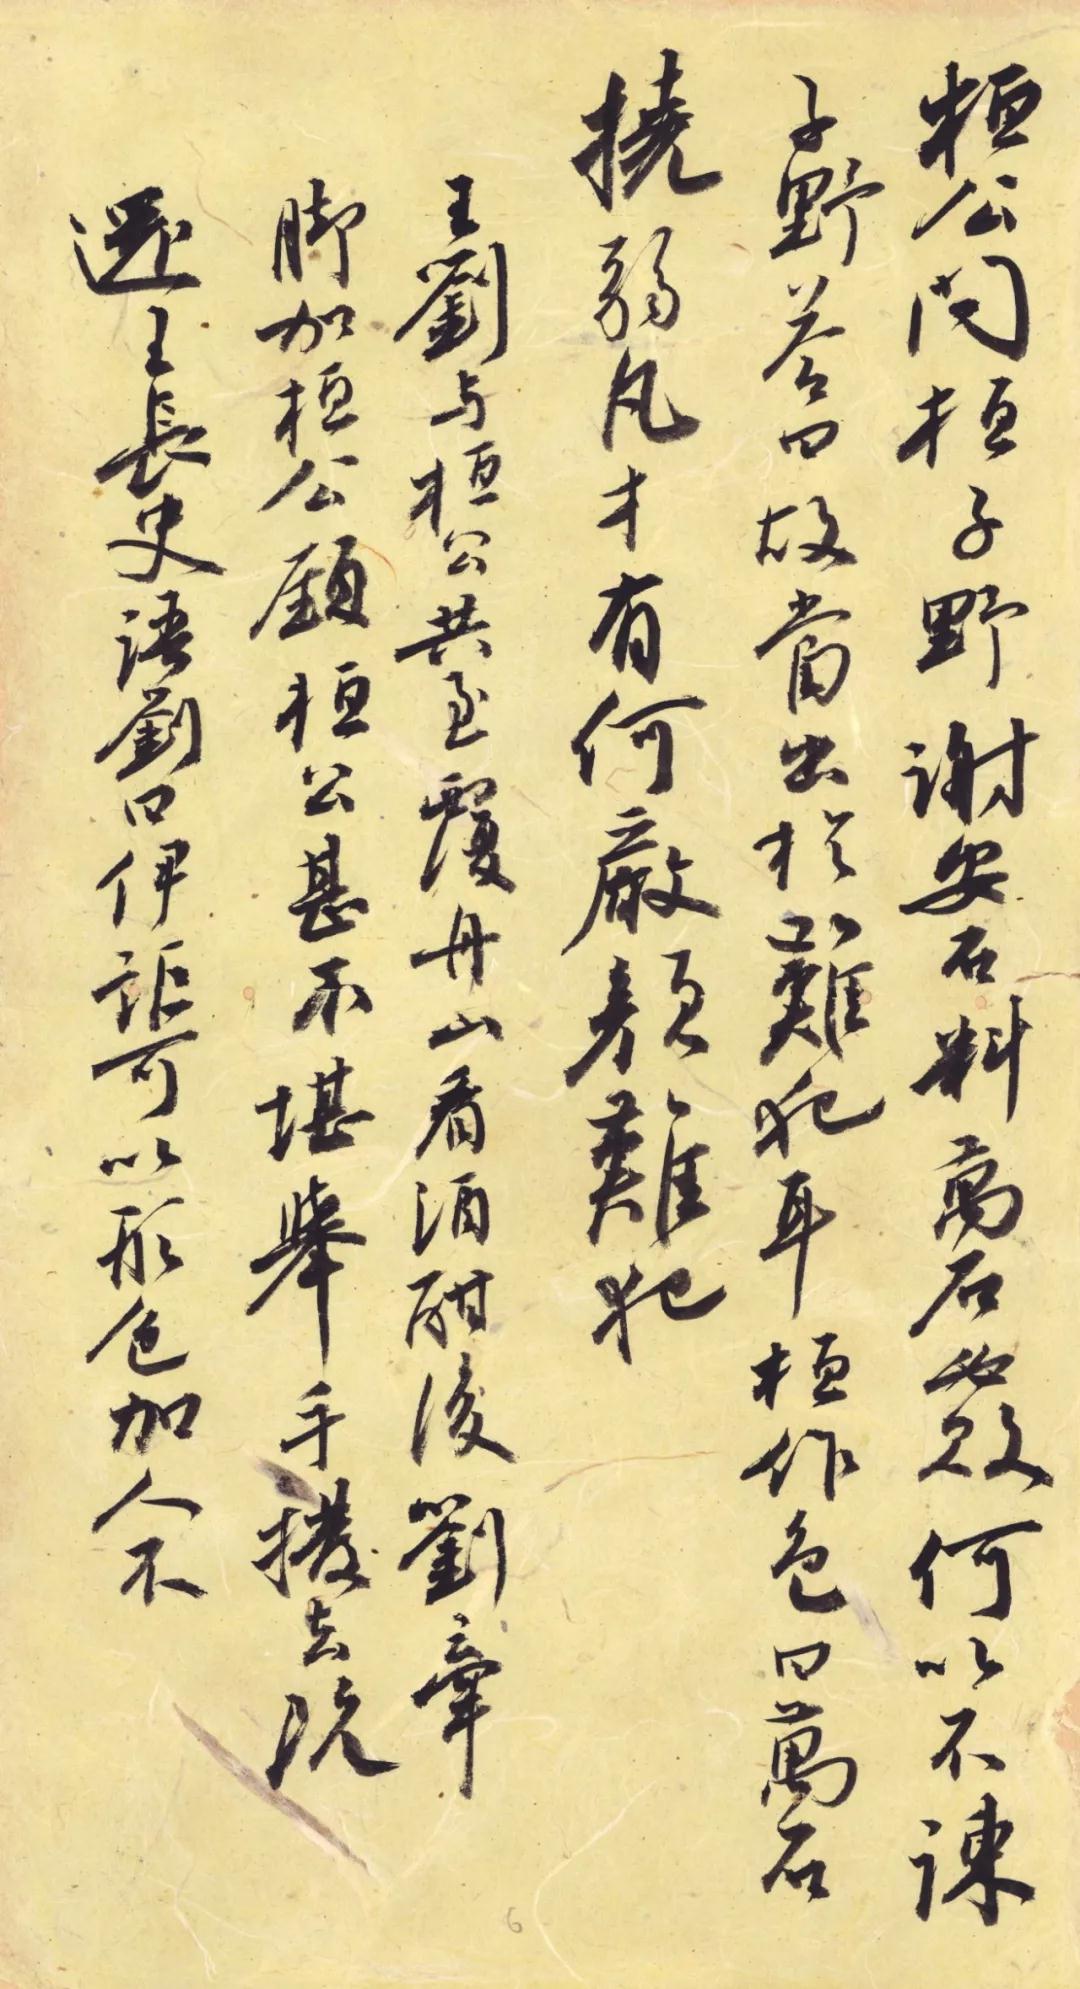 桓公問桓子野謝安石料萬石必敗何以不諫
子野答曰故當出於難犯耳桓作色曰萬石
撓弱凡才有何嚴顏難犯
王劉与桓公共至覆舟山看酒酣後劉牽
脚加桓公頸桓公甚不堪舉手撥去既
還王長史語劉曰伊詎可以形色加人不
6